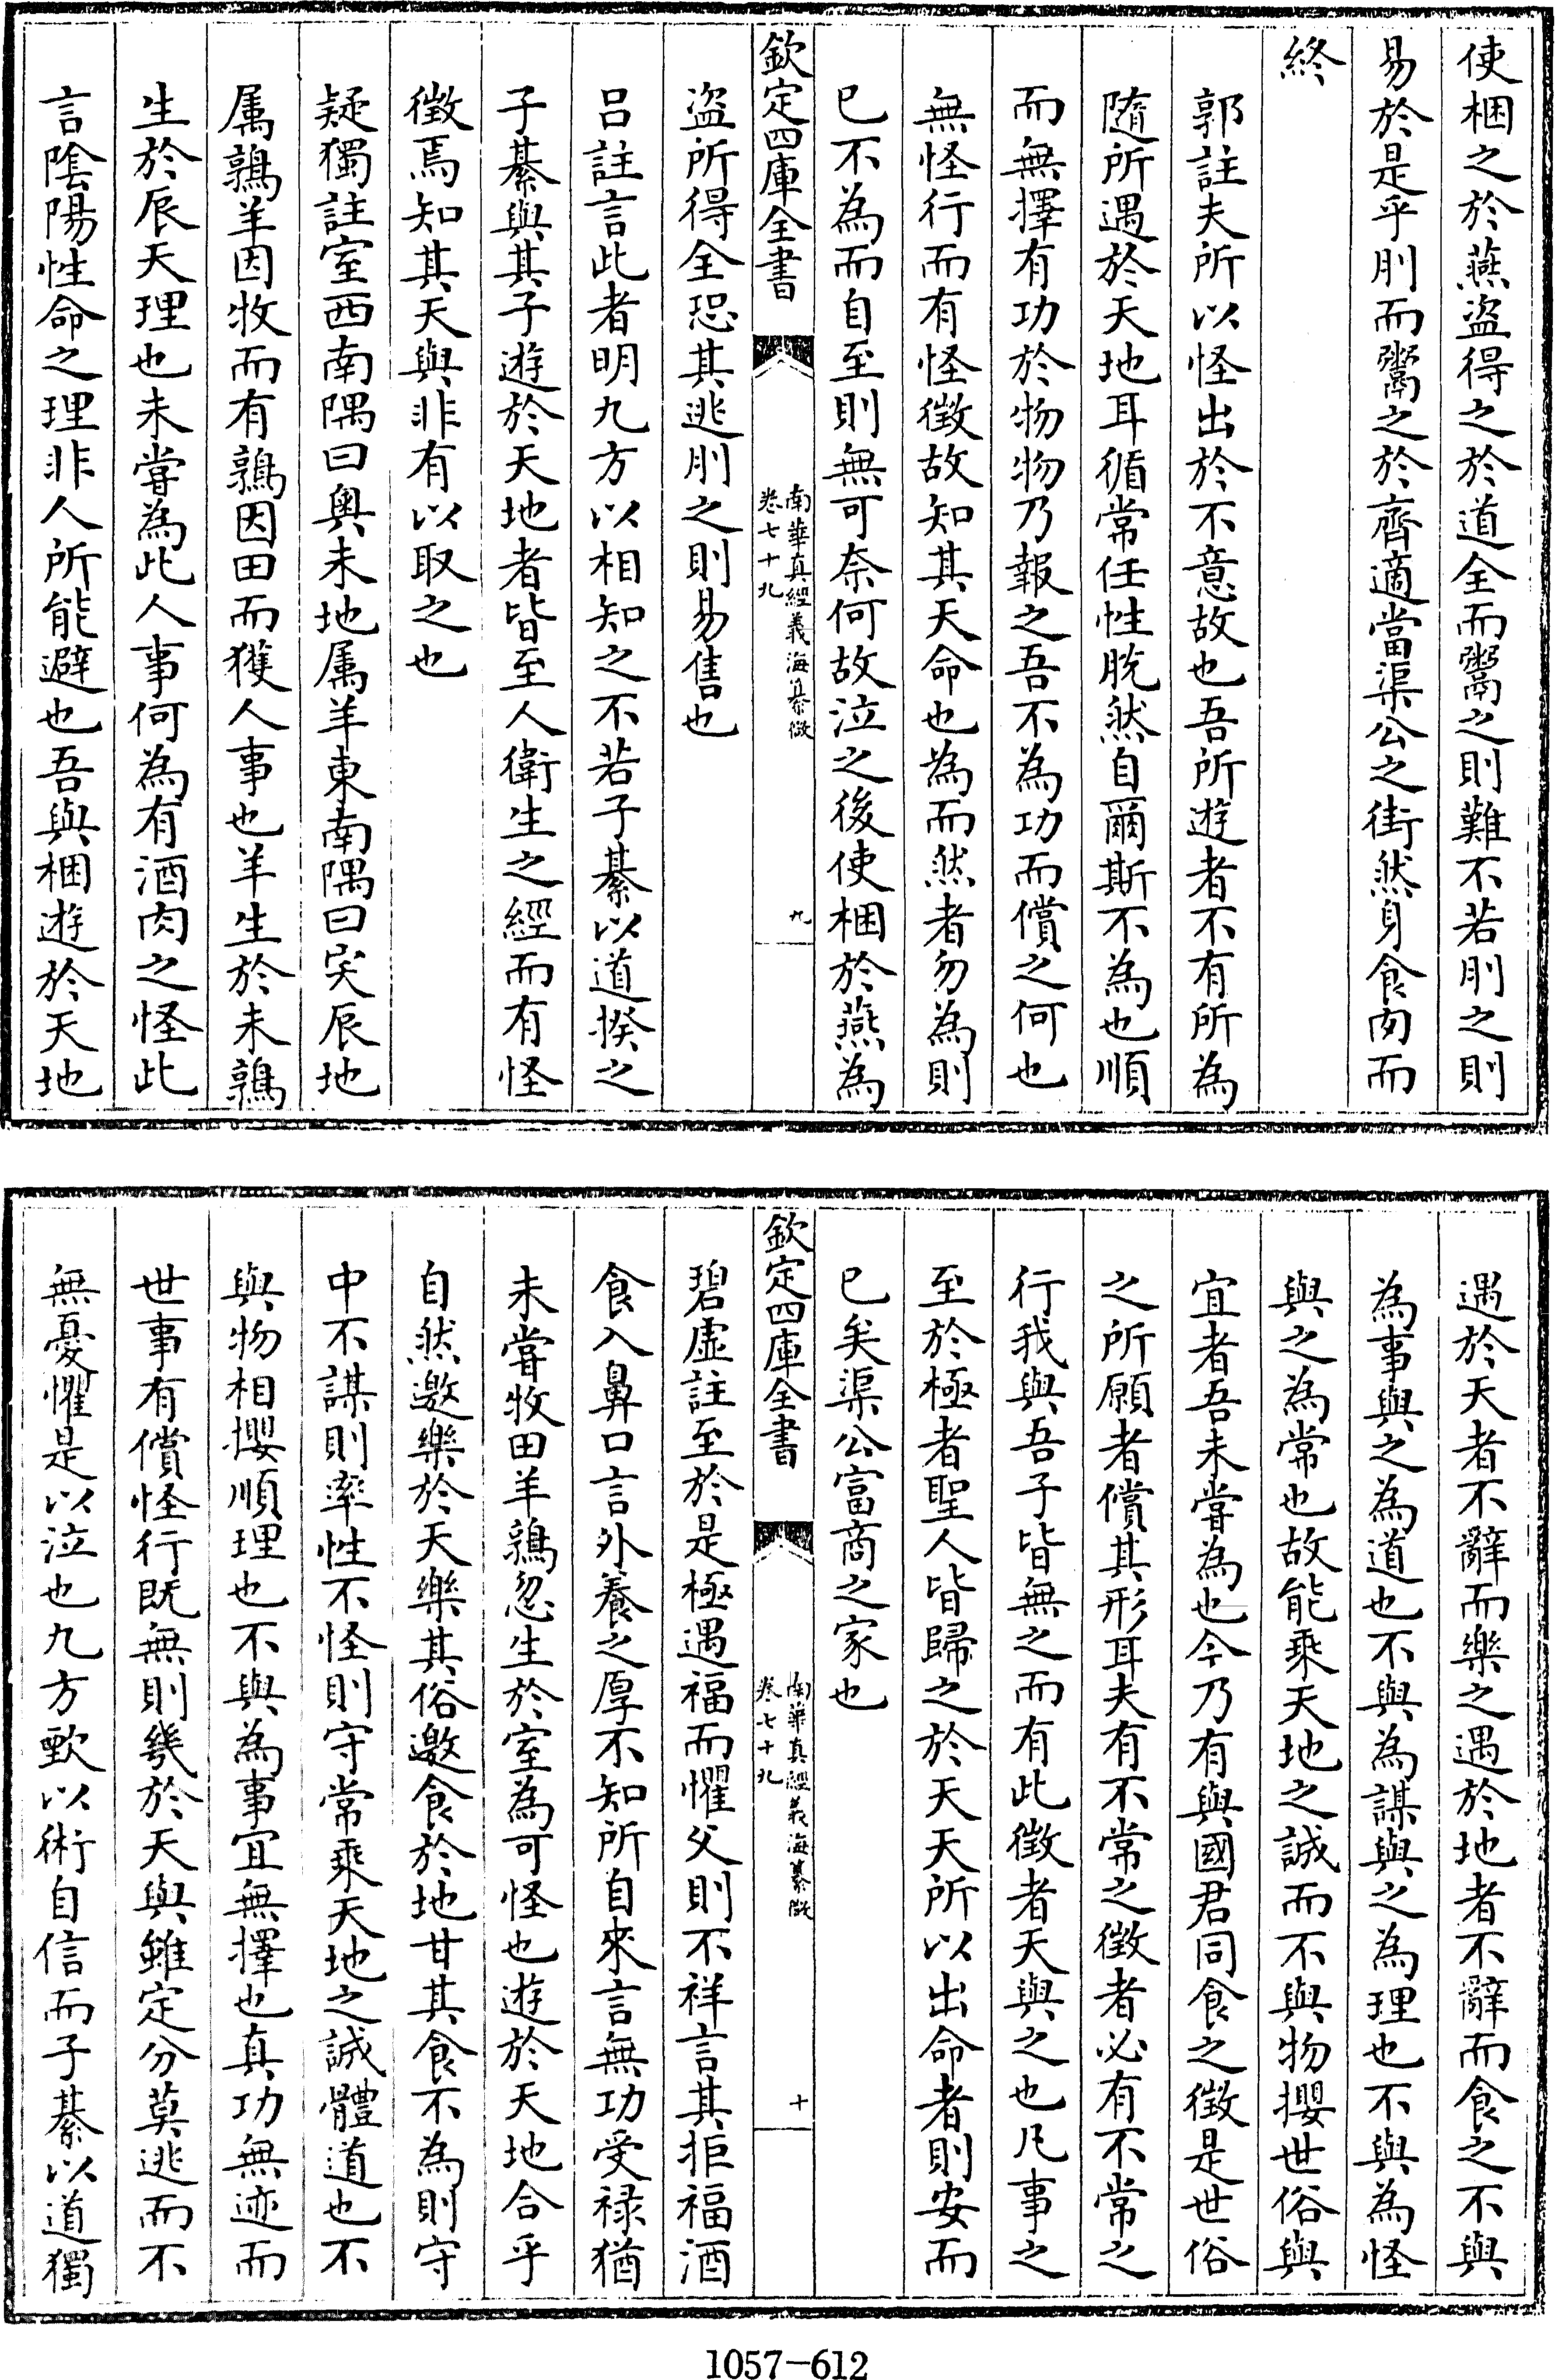 使梱之於燕盜得之於道全而鬻之則難不若刖之則
易於是乎刖而鬻之於齊適當渠公之街然身食肉而
終
郭註夫所以怪出於不意故也吾所遊者不有所為
隨所遇於天地耳循常任性脫然自爾斯不為也順
而無擇有功於物物乃報之吾不為功而償之何也
無怪行而有怪徵故知其天命也為而然者勿為則
已不為而自至則無可奈何故泣之後使梱於燕為
欽定四庫全書
南華真經義海纂微
卷七十九
九
盜所得全恐其逃刖之則易售也
呂註言此者明九方以相知之不若子綦以道揆之
子綦與其子遊於天地者皆至人衛生之經而有怪
徵焉知其天與非有以取之也
疑獨註室西南隅曰奧未地属羊東南隅曰宎辰地
属鶉羊因牧而有鶉因田而獲人事也羊生於未鶉
生於辰天理也未嘗為此人事何為有酒肉之怪此
言陰陽性命之理非人所能避也吾與梱遊於天地
遇於天者不辭而樂之遇於地者不辭而食之不與
為事與之為道也不與為謀與之為理也不與為怪
與之為常也故能乘天地之誠而不與物攖世俗與
宜者吾未嘗為也今乃有與國君同食之徵是世俗
之所願者償其形耳夫有不常之徵者必有不常之
行我與吾子皆無之而有此徵者天與之也凡事之
至於極者聖人皆歸之於天天所以出命者則安而
已矣渠公富商之家也
欽定四庫全書
南華真經義海纂微
卷七十九
十
碧虛註至於是極遇福而懼父則不祥言其拒福酒
食入鼻口言外養之厚不知所自來言無功受祿猶
未嘗牧田羊鶉忽生於室為可怪也遊於天地合乎
自然邀樂於天樂其俗邀食於地甘其食不為則守
中不謀則率性不怪則守常乘天地之誠體道也不
與物相攖順理也不與為事宜無擇也真功無迹而
世事有償怪行既無則幾於天與雖定分莫逃而不
無憂懼是以泣也九方歅以術自信而子綦以道獨
1057-612